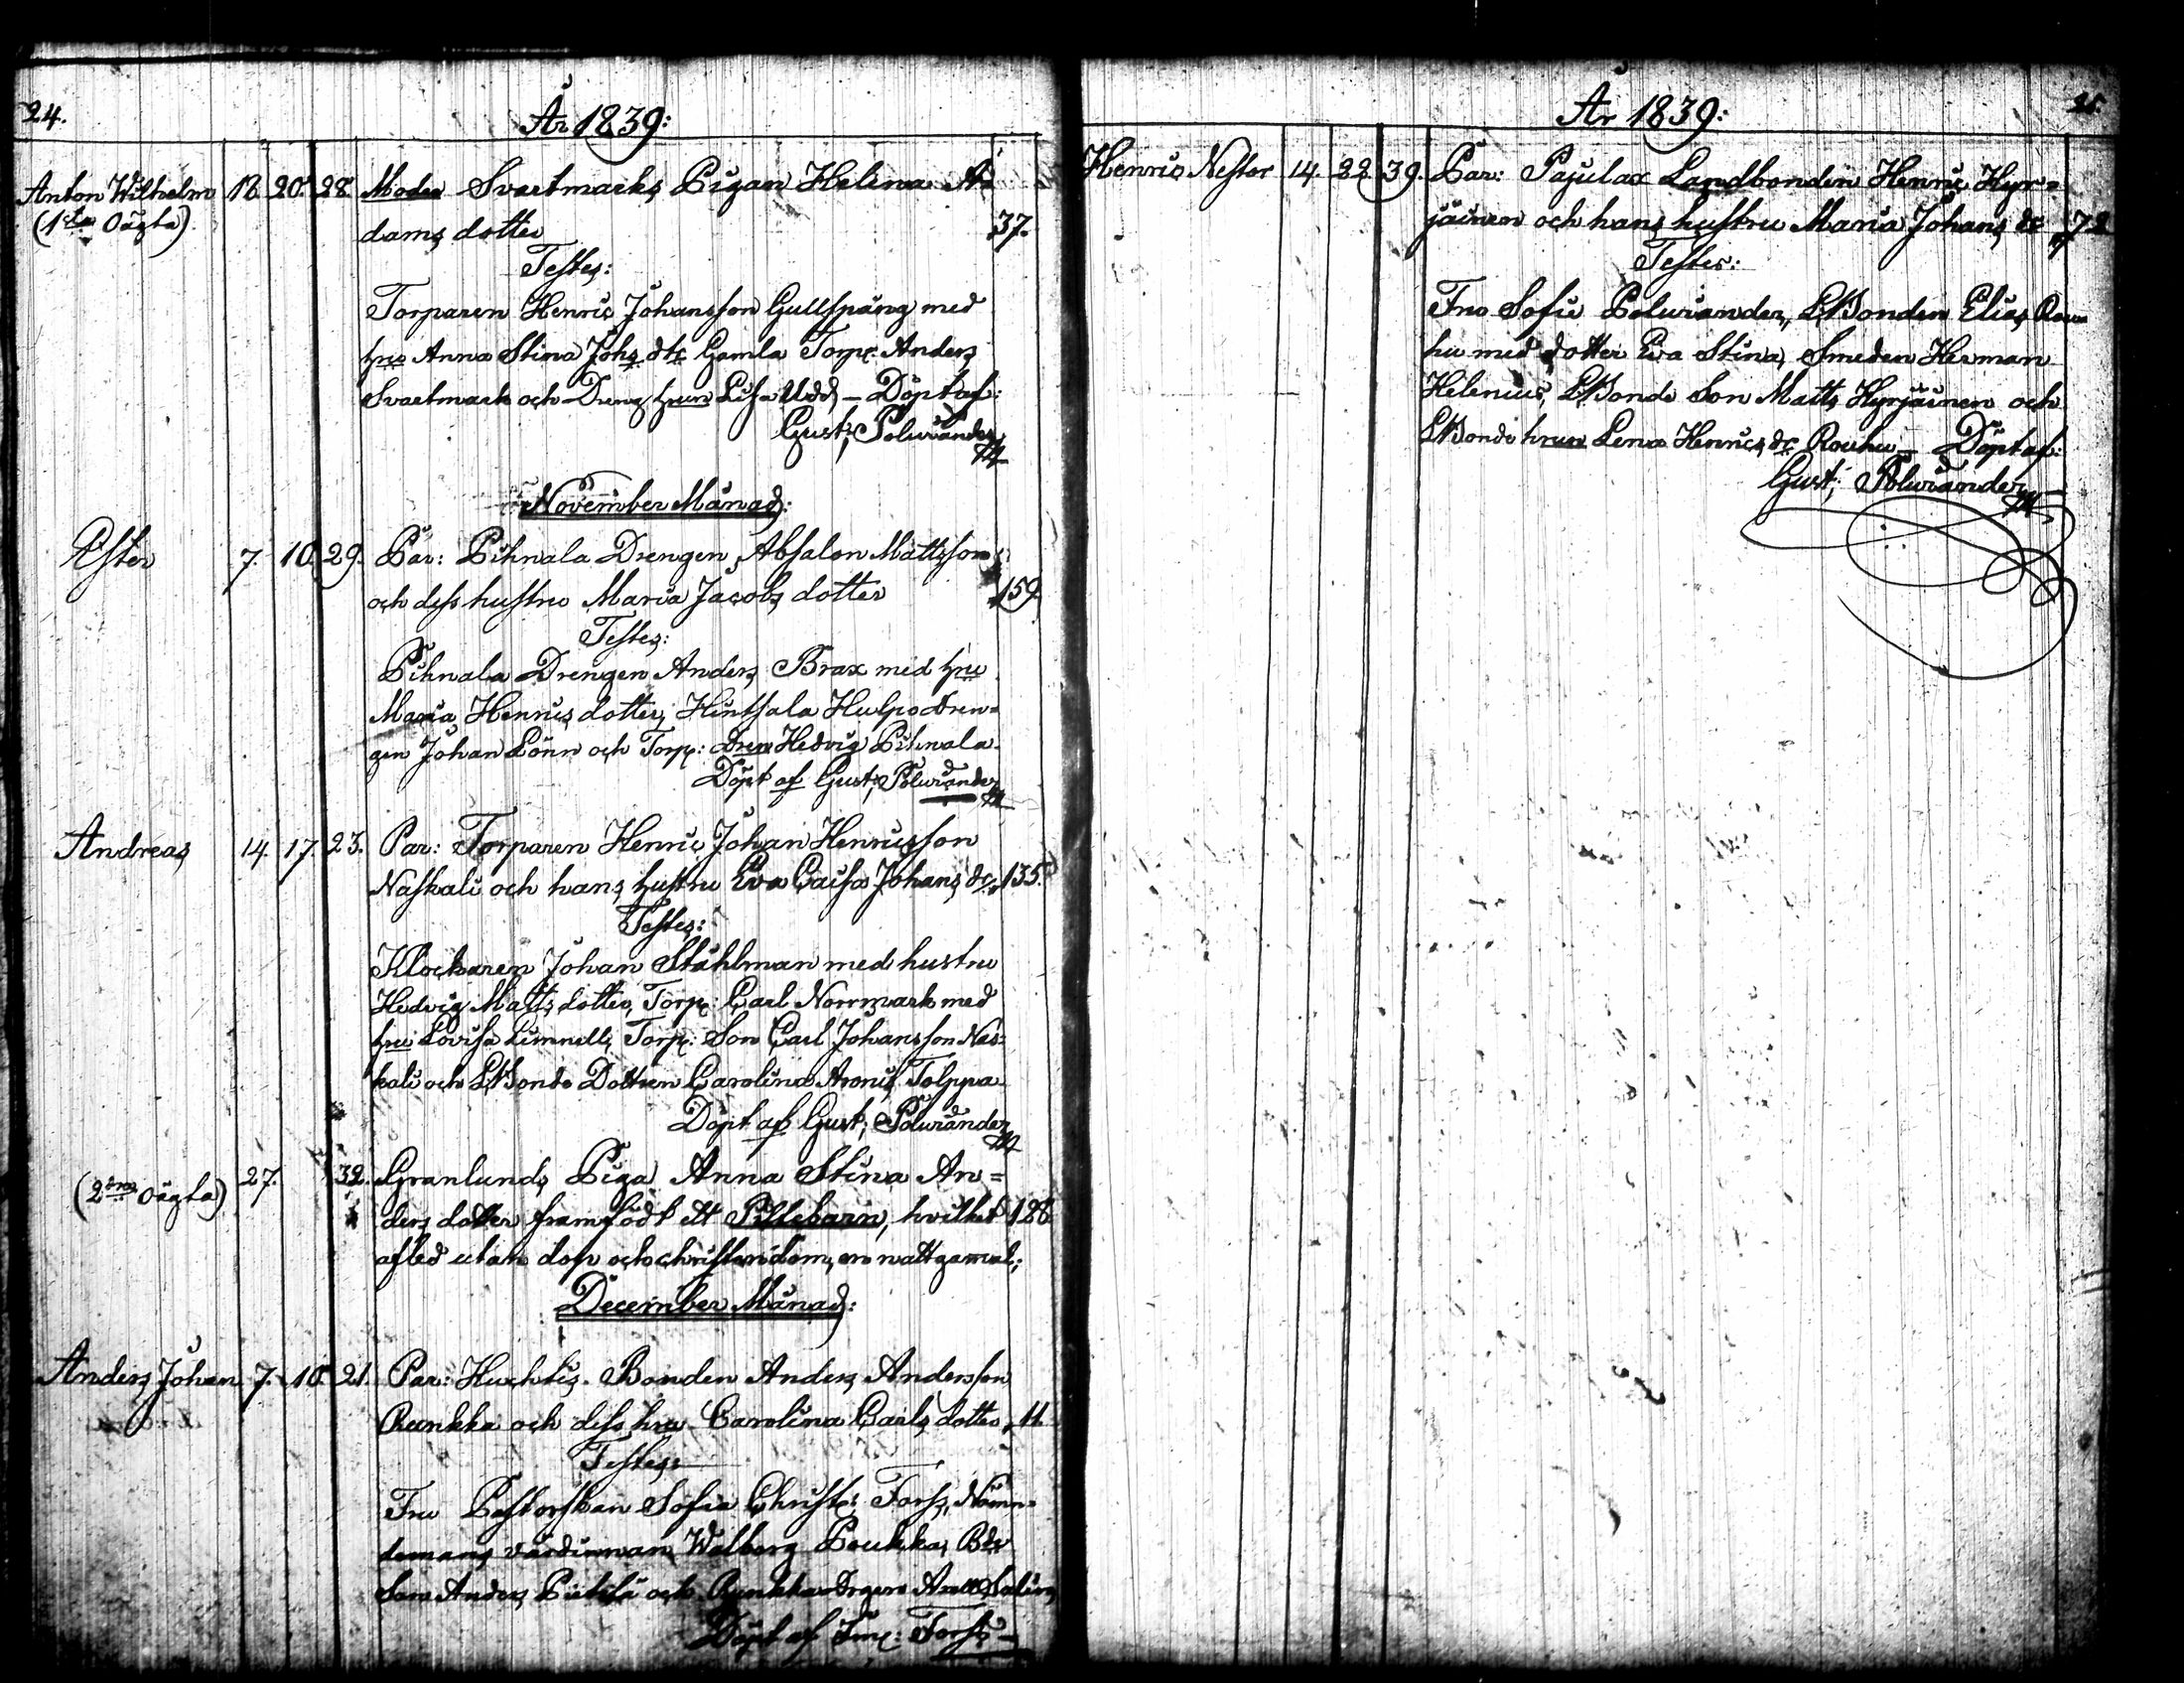 24.
År 1839:
Anton Wilhelm 18. 20. 28. Moder Svartmarks Pigan Helena A=
(1sta Oägta) dams dotter 37.
Testes:
Torparen Henric Johansson Gullspång med
hru Anna Stina Johs dtr Gamla Torp: Anders
Svartmark och Dreng hrun Lisa Udd – Döpt af:
Gust: Polviander
November Månad:
Ester 7. 10. 29. Par: Pihnala Drengen Absalon Mattsson
och dess hustru Maria Jacobs dotter 159.
Testes:
Pihnala Drengen Anders Brax med hru
Maria Henrics dotter, Hinthala Hulpo dren=
gen Johan Lönn och Torp: Hedvig Pihnala.
Döpt af Gust: Polviander
Andreas 14. 17. 23. Par: Torparen Henric Johan Henricsson
Naskali och hans hustru Eva Caisa Johans dr 135.
Testes:
Klockaren Johan Ståhlman med hustru
Hedvig Matts dotter, Torp: Carl Norrmark med
hru Lovisa Limnell, Torp: Son Carl Johansson Nas=
kali och LBonde Dottren Carolina Tolppa.
Döpt af Gust: Polviander
(2dra Oägta) 27. 32. Granlunds Piga Anna Stina An=
ders dotter framfödt ett Piltebarn, hvilket 128
afled utan dop och christendom, en natt gamal;
December Månad:
Anders Johan 7. 10. 21. Par: Huchtis Bonden Anders Andersson
Runkka och dess hru Carolina Carls dotter 11.
Testes:
Fru Pastorskan Sofia Christ: Forss, Nämn=
demans värdinnan Walborg Peukka, Bde
Son Anders Pietilä och Runkka
Döpt af Forss –
25.
År 1839:
Henric Nestor 14. 22. 39. Par: Pajulax Landbonden Henric Hyr=
jäinen och hans hustru Maria Johans dr 72
Testes:
Fru Sofie Polviander, LBonden Elias Rou
hu med dotter Eva Stina, Smeden Herman
Helenius, LBonde Son Matts Hyrjäinen och
LBonde hrun Lena Henrics dr Rouhu – Döpt af:
Gust: Polviander